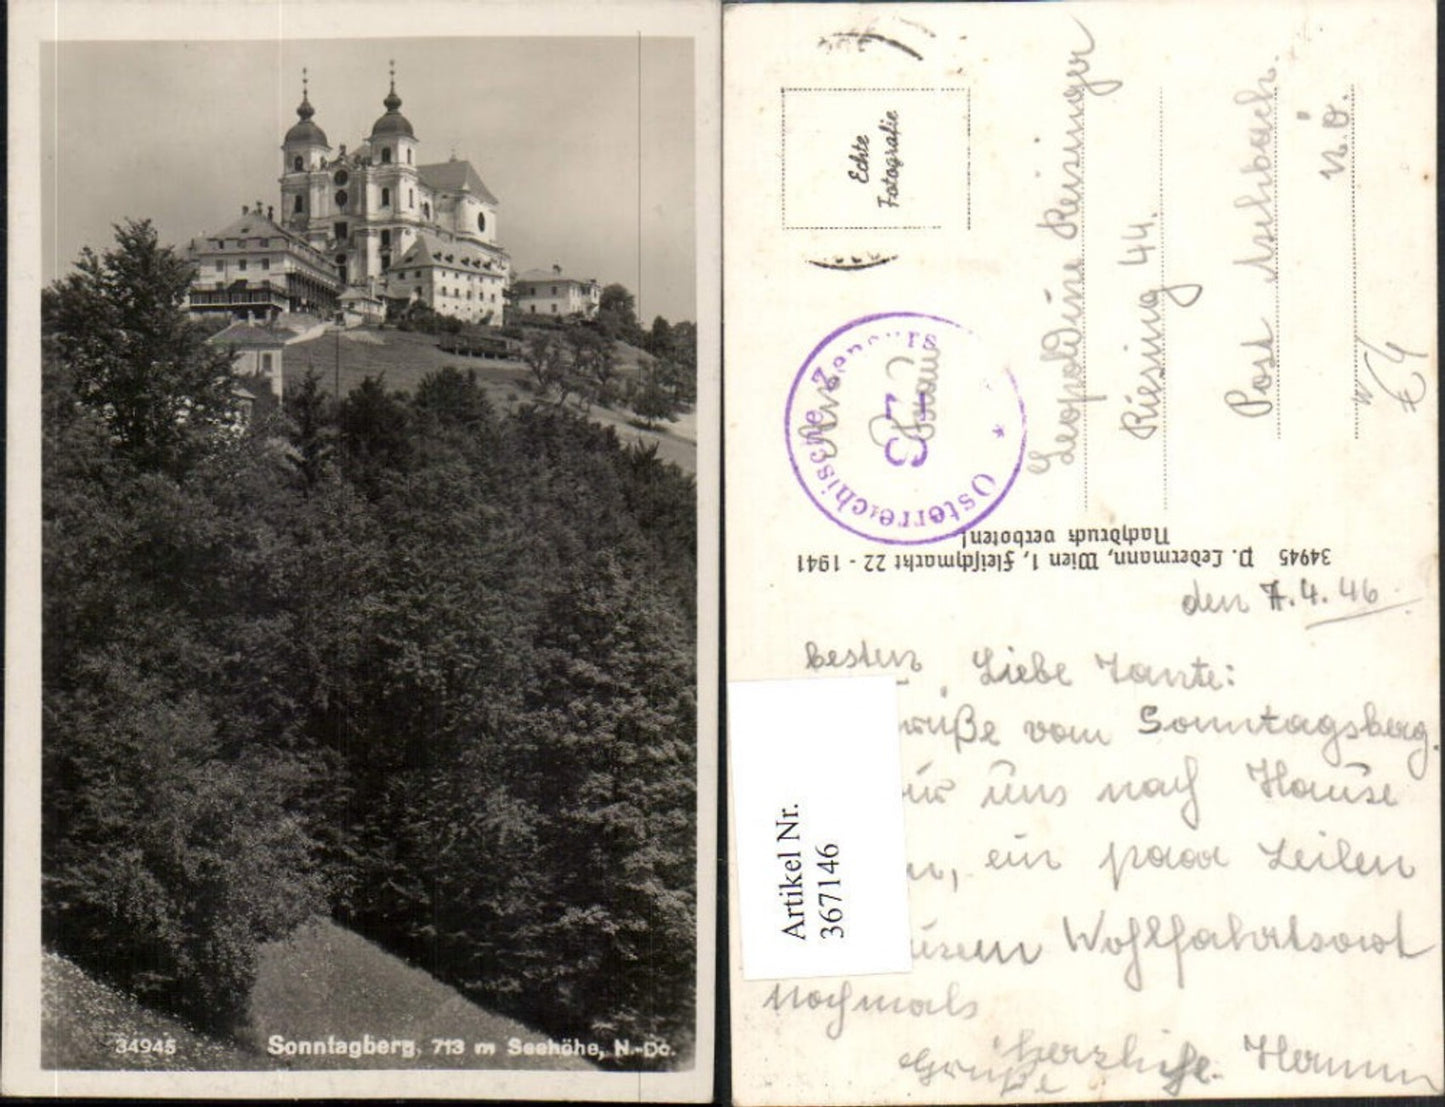 34945 Sonntagberg, 713 m Seehöhe, N.-Do.
Echte
Fotografie
Österreichische Zensurs
Leopoldine Reisinger
Riesing 44.
Post Aschbach.
N.Ö.
34945 P. Ledermann, Wien 1, Fleischmarkt 22 - 1941
Nachdruck verboten!
den 7.4.46
Liebe Tante:
besten
vom Sonntagsberg.
uns nach Hause
ein paar Zeilen
Wohlfahrtsort
Nochmals
herzliche
Grüße
Artikel Nr.
367146